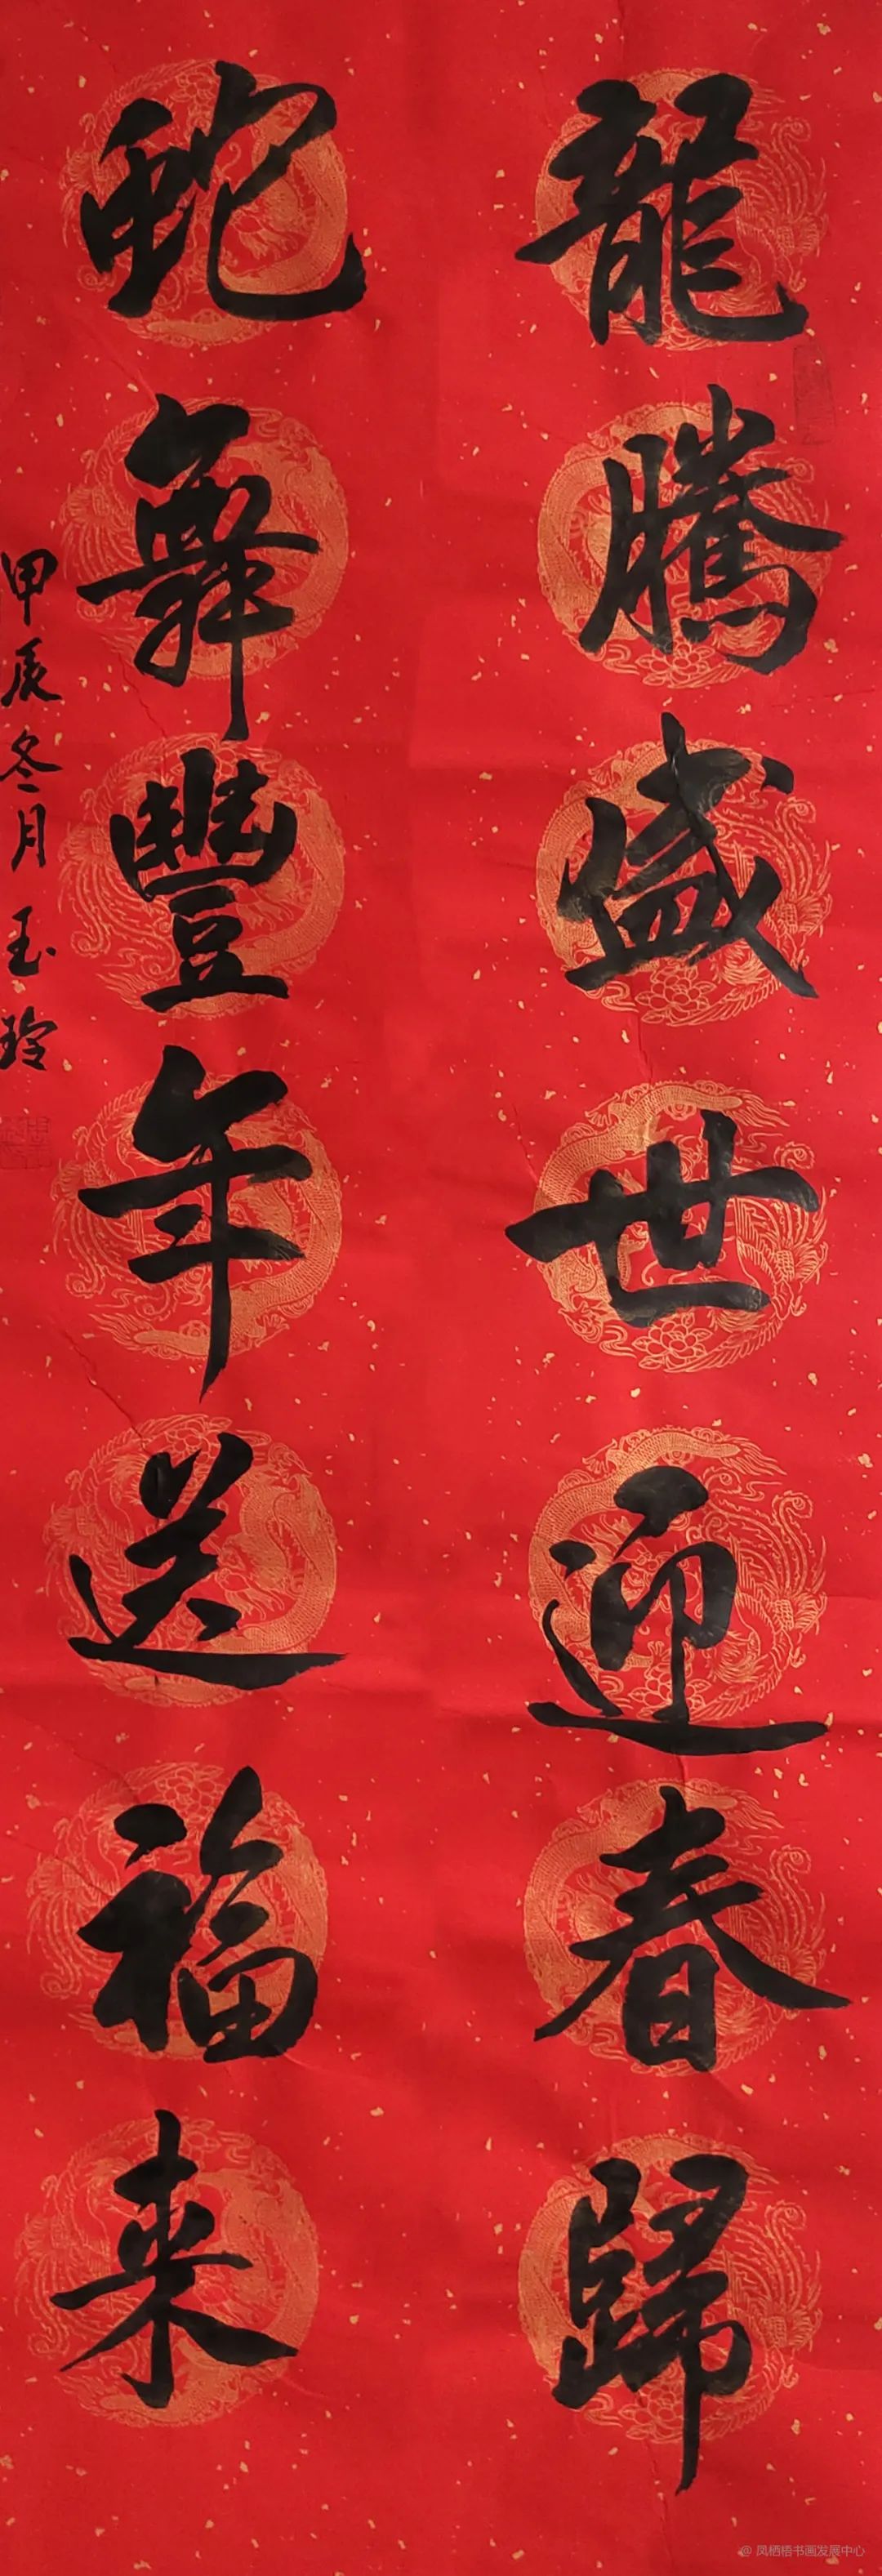 龍騰盛世迎春歸
蛇舞豐年送福来
甲辰冬月玉玲
@ 凤栖梧书画发展中心